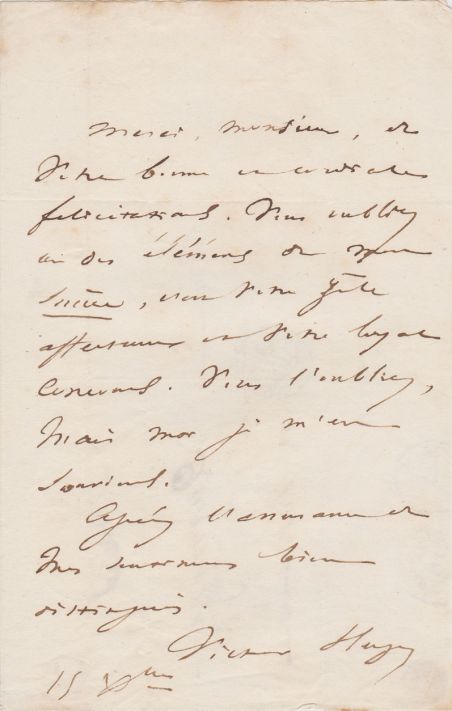 Merci, monsieur, de
Votre bonne et cordiales
félicitations. Vous oubliez
un des éléments de mon
succès, c'est Votre
affectueux et Votre loyal
concours. Vous l'oubliez,
Mais moi je m'en
souviens.
Agréez l'assurance de
mes sentimens bien
distingués.
Victor Hugo
15